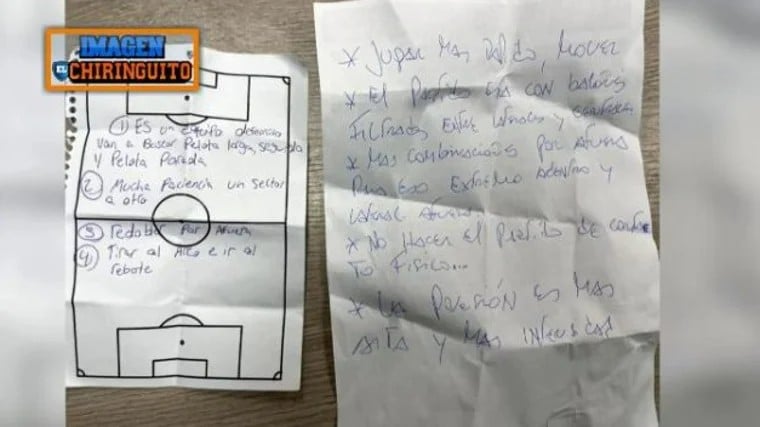 IMAGEN
EL
CHIRINGUITO
① ES un equipo defensivo
van a Buscar Pelota larga, segunda
y Pelota Parada
② Mucha Paciencia un sector
a otro
③ redoblar Por Afuera
④ Tirar al Arco e ir al
rebote
* JUGAR MAS RAPIDO, MOVER
* EL PARTIDO ERA CON balones
FILTRADOS ENTRE laterales y centrales
* MAS COMBINACIONES POR AFUERA
PARA ESO EXTREMO ADENTRO y
lateral AFUERA
* NO HACER EL PARTIDO DE contac
TO FISICO...
* LA PRESIÓN ES MAS
ALTA Y MAS INTENSIDAD